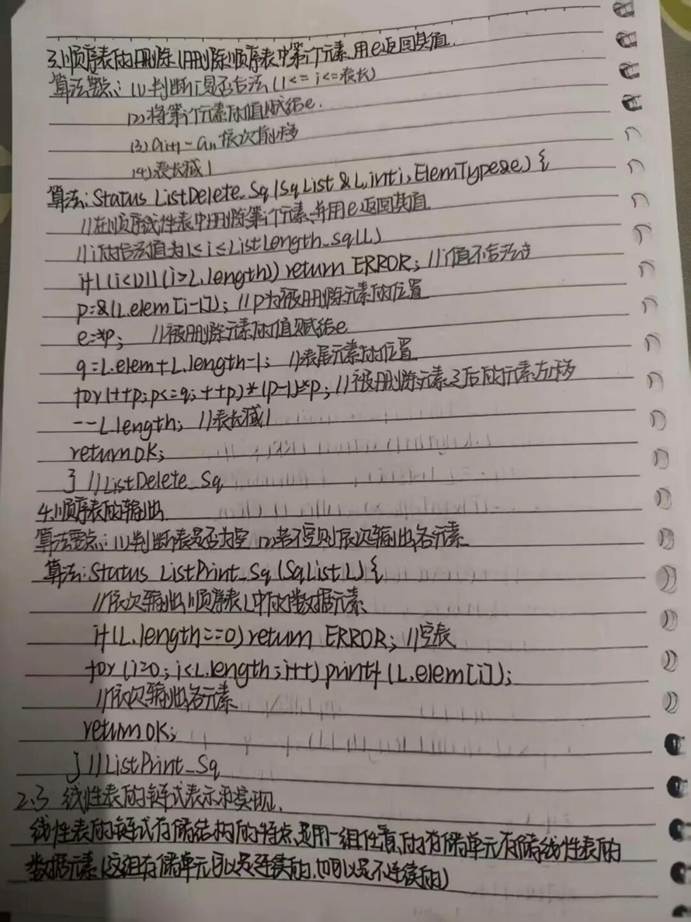 3.顺序表的删除(删除顺序表中第i个元素,用e返回其值.
算法要点:(1)判断i是否合法(1<=i<=表长)
(2)将第i个元素的值赋给e.
(3)ai+1~an依次前移
(4)表长减1
算法:Status ListDelete_Sq(SqList &L,int i,ElemType&e){
//在顺序线性表中删除第i个元素,并用e返回其值
//i的合法值为1≤i≤ListLength_Sq(L)
if((i<1)||(i>L.length))return ERROR; //i值不合法
p=&(L.elem[i-1]); //p为被删除元素的位置
e=*p; //被删除元素的值赋给e
q=L.elem+L.length-1; //表尾元素的位置
for(++p;p<=q;++p)*(p-1)=*p; //被删除元素之后的元素左移
--L.length; //表长减1
return OK;
} //ListDelete_Sq
4.顺序表的输出
算法要点:(1)判断表是否为空 (2)若不空则依次输出各元素
算法:Status ListPrint_Sq(SqList L){
//依次输出顺序表L中的数据元素
if(L.length==0)return ERROR; //空表
for(i=0;i<L.length;i++)printf(L.elem[i]);
//依次输出各元素
return OK;
} //ListPrint_Sq
2.3 线性表的链式表示和实现.
线性表的链式存储结构的特点是用一组任意的存储单元存储线性表的
数据元素(这组存储单元可以是连续的,也可以是不连续的)